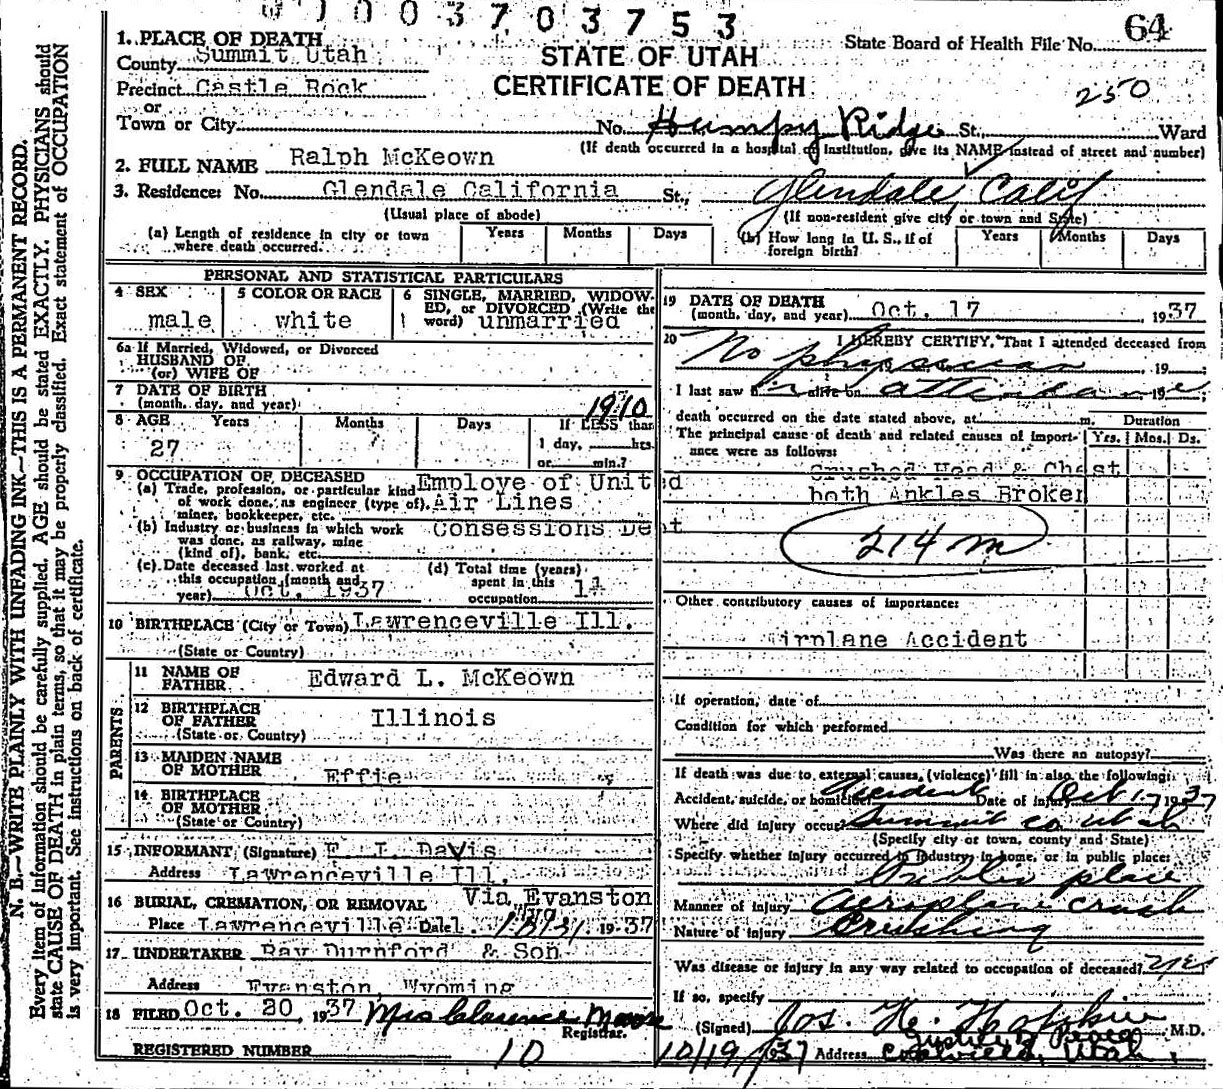 0 1 0 0 3 7 0 3 7 5 3
64
1. PLACE OF DEATH
STATE OF UTAH
State Board of Health File No.
County Summit Utah
CERTIFICATE OF DEATH
Precinct Castle Rock
250
or
Town or City No. Humpy Ridge St., Ward
(If death occurred in a hospital or institution, give its NAME instead of street and number)
2. FULL NAME Ralph McKeown
3. Residence: No. Glendale California St., Glendale Calif
(Usual place of abode) (If non-resident give city or town and State)
(a) Length of residence in city or town where death occurred. Years Months Days (b) How long in U. S., if of foreign birth? Years Months Days
PERSONAL AND STATISTICAL PARTICULARS
4 SEX male
5 COLOR OR RACE white
6 SINGLE, MARRIED, WIDOW-
ED, or DIVORCED (Write the
word) unmarried
6a If Married, Widowed, or Divorced
HUSBAND OF
(or) WIFE OF
7 DATE OF BIRTH
(month, day, and year) 1910
8 AGE Years Months Days If LESS than
27 1 day, hrs.
or min.?
9 OCCUPATION OF DECEASED Employe of United
(a) Trade, profession, or particular kind
of work done, as engineer (type of), Air Lines
miner, bookkeeper, etc.
(b) Industry or business in which work Consessions Dept
was done, as railway, mine
(kind of), bank, etc.
(c) Date deceased last worked at
this occupation (month and
year) Oct. 1937
(d) Total time (years)
spent in this
occupation
10 BIRTHPLACE (City or Town) Lawrenceville Ill.
(State or Country)
PARENTS
11 NAME OF
FATHER Edward L. McKeown
12 BIRTHPLACE
OF FATHER Illinois
(State or Country)
13 MAIDEN NAME
OF MOTHER Effie
14 BIRTHPLACE
OF MOTHER
(State or Country)
15 INFORMANT (Signature) Davis
Address Lawrenceville Ill.
16 BURIAL, CREMATION, OR REMOVAL Via Evanston
Place Lawrenceville Ill. Date 1937
17 UNDERTAKER Ray Durnford & Son
Address Evanston, Wyoming
18 FILED Oct. 20, 1937 Mrs Clarence Moore
Registrar.
REGISTERED NUMBER 10
19 DATE OF DEATH
(month, day, and year) Oct. 17, 1937
20 I HEREBY CERTIFY, That I attended deceased from
No physician , 19 ;
I last saw h alive on in attendance 19 ;
death occurred on the date stated above, at m. Duration
The principal cause of death and related causes of import- Yrs. Mos. Ds.
ance were as follows:
Crushed Head & Chest
both Ankles Broken
214 m
Other contributory causes of importance:
Airplane Accident
If operation, date of
Condition for which performed
Was there an autopsy?
If death was due to external causes, (violence) fill in also the following:
Accident, suicide, or homicide Accident Date of injury Oct 17 1937
Where did injury occur Summit co utah
(Specify city or town, county and State)
Specify whether injury occurred in industry, in home, or in public place:
Public place
Manner of injury Aeroplane crash
Nature of injury Crushing
Was disease or injury in any way related to occupation of deceased? Yes
If so, specify
(Signed) Jos. H. Hopkins M.D.
Justice of Peace
10/19/37 Address Coalville, Utah
N. B.—WRITE PLAINLY WITH UNFADING INK—THIS IS A PERMANENT RECORD.
Every item of information should be carefully supplied. AGE should be stated EXACTLY. PHYSICIANS should
state CAUSE OF DEATH in plain terms, so that it may be properly classified. Exact statement of OCCUPATION
is very important. See instructions on back of certificate.